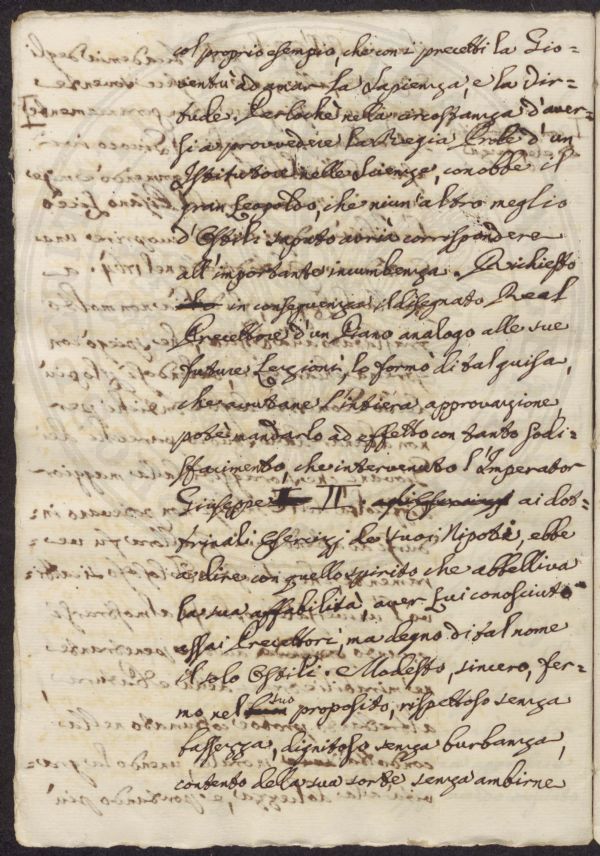 col proprio esempio, che con i precetti la Gio=
ventù ad amar la Sapienza, e la Vir=
tude. Perlochè nella circostanza d'aver=
si a provvedere la Regia Prole d'un
Istitutore nelle Scienze, conobbe il
gran Leopoldo, che niun altro meglio
d'Ostili saputo avria corrispondere
all'importante incumbenza. Richiesto
in conseguenza il disegnato Real
Precettore d'un Piano analogo alle sue
future Lezioni, lo formò di tal guisa,
che avutane l'intiera approvazione,
potè mandarlo ad effetto con tanto sodi=
sfacimento, che intervenuto l'Imperator
Giuseppe II. agli Esercizj ai dot=
trinali Esercizj de' suoi Nipoti, ebbe
a dire con quello spirito che abbelliva
la sua affabilità, aver Lui conosciuto
assai Precettori, ma degno di tal nome
il solo Ostili. Modesto, sincero, fer=
mo nel suo proposito, rispettoso senza
bassezza, dignitoso senza burbanza,
contento della sua sorte senza ambirne